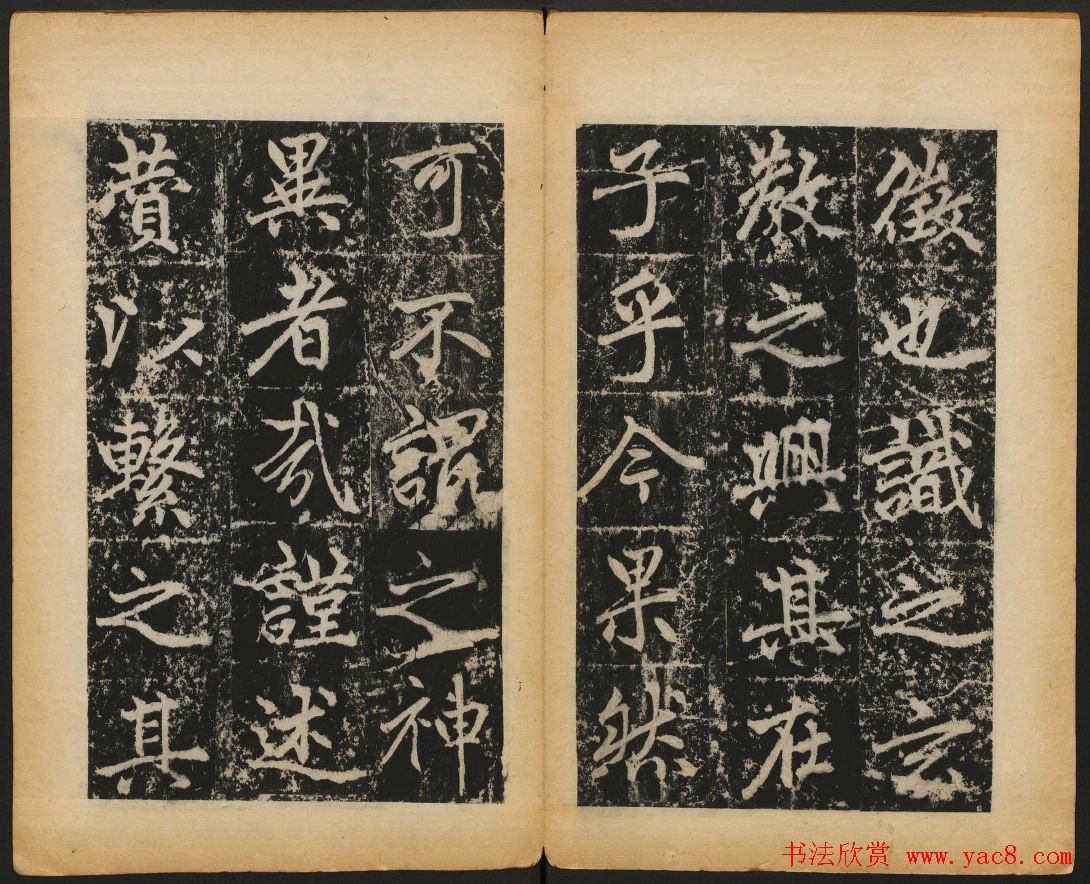 徵也識之云
教之興其在
子乎今果然
可不謂之神
異者哉謹述
賛以繫之其
书法欣赏 www.yac8.com